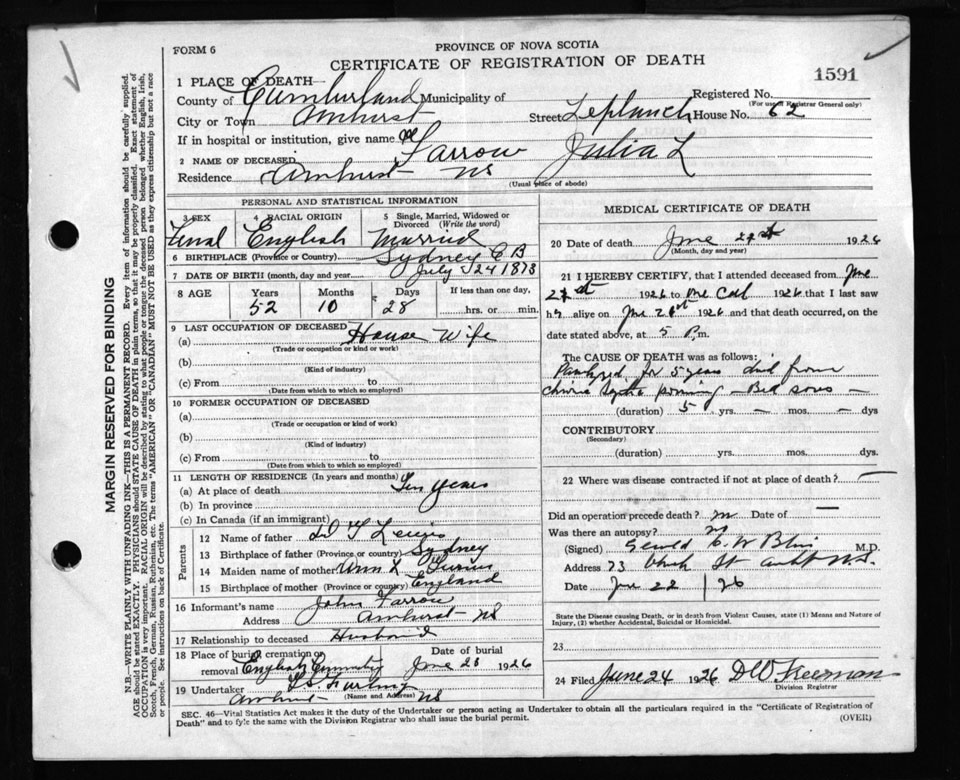 FORM 6
PROVINCE OF NOVA SCOTIA
CERTIFICATE OF REGISTRATION OF DEATH
1591
1 PLACE OF DEATH—
County of Cumberland Municipality of Registered No.
(For use of Registrar General only)
City or Town Amherst Street Leplanch House No. 62
If in hospital or institution, give name
2 NAME OF DECEASED Farrow Julia L
Residence Amherst NS
(Usual place of abode)
PERSONAL AND STATISTICAL INFORMATION
3 SEX 4 RACIAL ORIGIN 5 Single, Married, Widowed or Divorced (Write the word)
English Married
6 BIRTHPLACE (Province or Country) Sydney C B
7 DATE OF BIRTH (month, day and year) July 24 1873
8 AGE Years Months Days If less than one day,
52 10 28 hrs. or min.
9 LAST OCCUPATION OF DECEASED
(a) House Wife
(Trade or occupation or kind or work)
(b)
(Kind of industry)
(c) From to
(Date from which to which so employed)
10 FORMER OCCUPATION OF DECEASED
(a)
(Trade or occupation or kind of work)
(b)
(Kind of industry)
(c) From to
(Date from which to which so employed)
11 LENGTH OF RESIDENCE (In years and months)
(a) At place of death Ten years
(b) In province
(c) In Canada (if an immigrant)
Parents
12 Name of father
13 Birthplace of father (Province or country) Sydney
14 Maiden name of mother Ann
15 Birthplace of mother (Province or country) England
16 Informant's name John Farrow
Address Amherst NS
17 Relationship to deceased Husband
18 Place of burial cremation or removal Date of burial
English June 23 1926
19 Undertaker
(Name and Address)
Amherst NS
MEDICAL CERTIFICATE OF DEATH
20 Date of death June 1926
(Month, day and year)
21 I HEREBY CERTIFY, that I attended deceased from June
1926 to one Call 1926 that I last saw
h alive on June 21st 1926 and that death occurred, on the
date stated above, at 5 P.m.
The CAUSE OF DEATH was as follows:
for 5 years died from
Bed sores —
(duration) 5 yrs. — mos. — dys
CONTRIBUTORY
(Secondary)
(duration) yrs. mos. dys.
22 Where was disease contracted if not at place of death? —
Did an operation precede death? no Date of —
Was there an autopsy? no
(Signed) M.D.
Address St N.S.
Date June 22 / 26
State the Disease causing Death, or in death from Violent Causes, state (1) Means and Nature of
Injury, (2) whether Accidental, Suicidal or Homicidal.
23
24 Filed June 24 1926 D W Freeman
Division Registrar
SEC. 46—Vital Statistics Act makes it the duty of the Undertaker or person acting as Undertaker to obtain all the particulars required in the "Certificate of Registration of
Death" and to fyle the same with the Division Registrar who shall issue the burial permit. (OVER)
MARGIN RESERVED FOR BINDING
N.B.—WRITE PLAINLY WITH UNFADING INK—THIS IS A PERMANENT RECORD. Every item of information should be carefully supplied.
AGE should be stated EXACTLY. PHYSICIANS should STATE CAUSE OF DEATH in plain terms, so that it may be properly classified. Exact statement of
OCCUPATION is very important. RACIAL ORIGIN will be described by stating to what people or tongue the deceased person belonged whether English, Irish,
Scotch, French, German, Russian, Ruthenian, etc. The terms "AMERICAN" or "CANADIAN" MUST NOT BE USED as they express citizenship but not a race
or people. See instructions on back of Certificate.